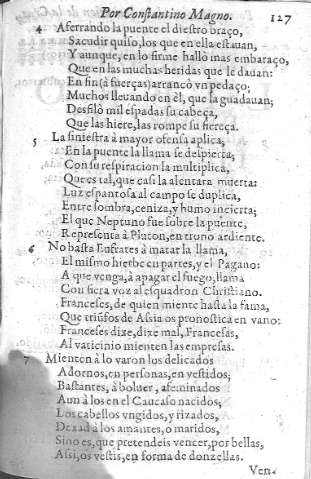 Por Constantino Magno. 127
4 Aferrando la puente el diestro braço,
Sacudir quiso, los que en ella estauan,
Y aunque, en lo firme hallò mas embaraço,
Que en las muchas heridas que le dauan:
En fin (à fuerças) arrancò vn pedaço;
Muchos lleuando en èl, que la guadauan;
Desfilò mil espadas su cabeça,
Que las hiere, las rompe su fiereça.
5 La siniestra à mayor ofensa aplica,
En la puente la llama se despierta,
Con su respiracion la multiplica,
Que es tal, que casi la alentara muerta:
Luz espantosa al campo se duplica,
Entre sombra, ceniza, y humo incierta;
El que Neptuno fue sobre la puente,
Representa à Pluton, en trono ardiente.
6 No basta Eufrates à matar la llama,
El mismo hierbe en partes, y el Pagano:
A que venga, à apagar el fuego, llama
Con fiera voz al esquadron Christiano.
Franceses, de quien miente hasta la fama,
Que triūfos de Assia os pronostica en vano:
Franceses dixe, dixe mal, Francesas,
Al vaticinio mienten las empresas.
7 Mienten à lo varon los delicados
Adornos, en personas, en vestidos;
Bastantes, à boluer, afeminados
Aun à los en el Caucaso nacidos;
Los cabellos vngidos, y rizados,
Dexad à los amantes, o maridos,
Sino es, que pretendeis vencer, por bellas,
Assi, os vestis, en forma de donzellas.
Ven-